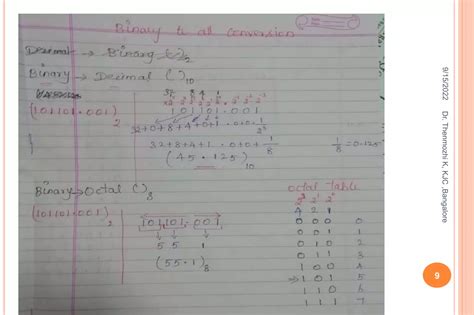 Binary to all conversion
Decimal → Binary ( )₂
Binary → Decimal ( )₁₀
32 8 4 1
(101101.001)₂
101101.001
32+0+8+4+0+1 . 0+0+ 1/2³
32+8+4+1 . 0+0+ 1/8
1/8 = 0.125
(45.125)₁₀
Binary → Octal ( )₈
Octal Table
2² 2¹ 2⁰
(101101.001)₂
101,101.001
4 2 1
0 0 0 0
0 0 1 1
5 5 1
0 1 0 2
(55.1)₈
0 1 1 3
1 0 0 4
→ 1 0 1 5
1 1 0 6
1 1 1 7
9/15/2022 Dr. Thenmozhi K, KJC, Bangalore
9